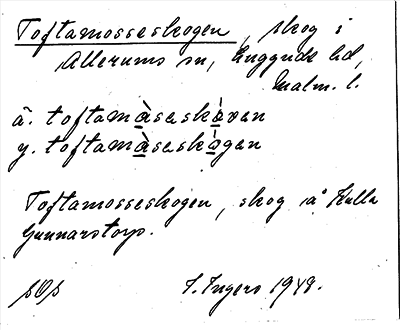 Toftamosseskogen, skog i
Allerums sn, Luggude hd,
Malm. l.
ä. toftamàsaskàvan
y. toftamàseskògan
Toftamosseskogen, skog å Kulla
Gunnarstorp.
I. Ingers 1948.